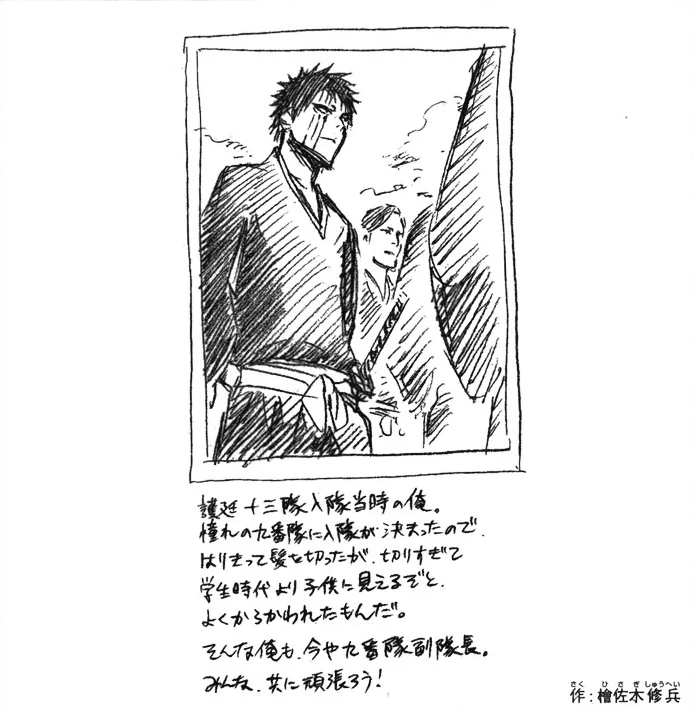 護廷十三隊入隊当時の俺。
憧れの九番隊に入隊が決まったので、
はりきって髪を切ったが、切りすぎて
学生時代より子供に見えるぞと、
よくからかわれたもんだ。
そんな俺も、今や九番隊副隊長。
みんな、共に頑張ろう!
さく ひさぎしゅうへい
作:檜佐木修兵